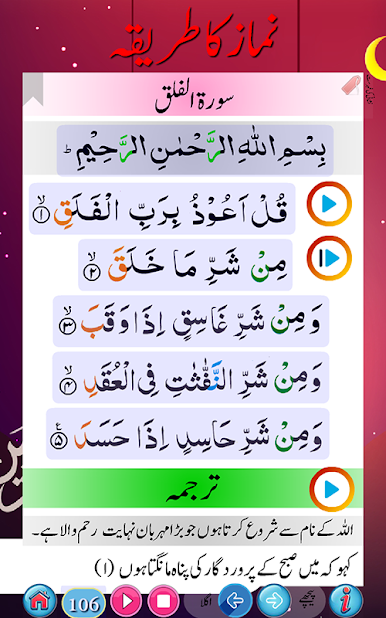 نماز کا طریقہ
سورۃ الفلق
بِسْمِ اللهِ الرَّحْمٰنِ الرَّحِيْمِ ؕ
قُلْ اَعُوْذُ بِرَبِّ الْفَلَقِ ۙ﴿۱﴾
مِنْ شَرِّ مَا خَلَقَ ۙ﴿۲﴾
وَمِنْ شَرِّ غَاسِقٍ اِذَا وَقَبَ ۙ﴿۳﴾
وَمِنْ شَرِّ النَّفّٰثٰتِ فِى الْعُقَدِ ۙ﴿۴﴾
وَمِنْ شَرِّ حَاسِدٍ اِذَا حَسَدَ ﴿۵﴾
ترجمہ
اللہ کے نام سے شروع کرتا ہوں جو بڑا مہربان نہایت رحم والا ہے۔
کہو کہ میں صبح کے پروردگار کی پناہ مانگتا ہوں (۱)
106
اگلا
پیچھے
i